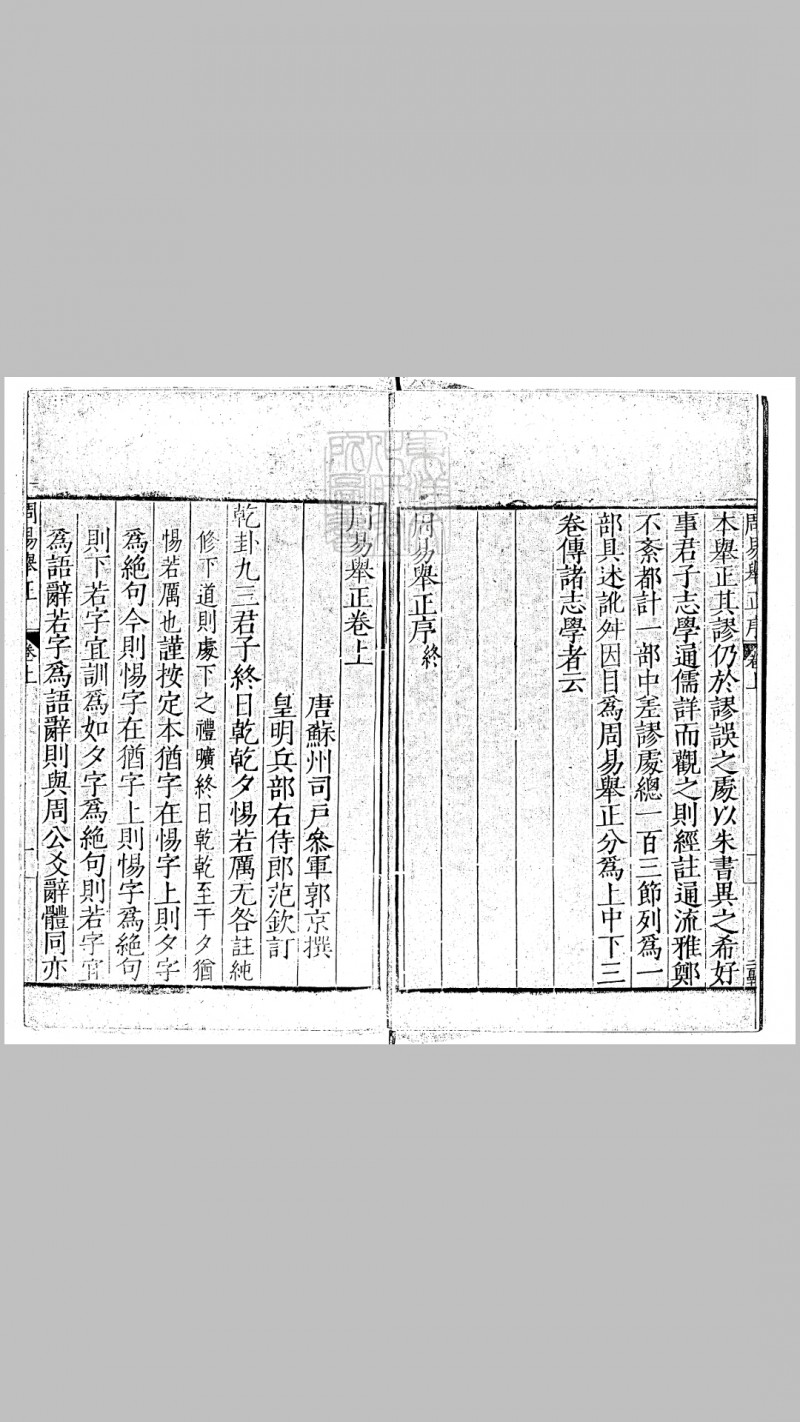 周易舉正序 卷上
本舉正其謬仍於謬誤之處以朱書異之希好
事君子志學通儒詳而觀之則經註通流雅鄭
不紊都計一部中差謬處總一百三節列爲一
部具述訛舛因目爲周易舉正分爲上中下三
卷傳諸志學者云
周易舉正序終
周易舉正卷上
唐蘇州司戶叅軍郭京撰
皇明兵部右侍郎范欽訂
乾卦九三君子終日乾乾夕惕若厲无咎註純
修下道則處下之禮曠終日乾乾至于夕猶
惕若厲也謹按定本猶字在惕字上則夕字
爲絕句今則惕字在猶字上則惕字爲絕句
則下若字宜訓爲如夕字爲絕句則若字宜
爲語辭若字爲語辭則與周公爻辭體同亦
周易舉正 卷上 一